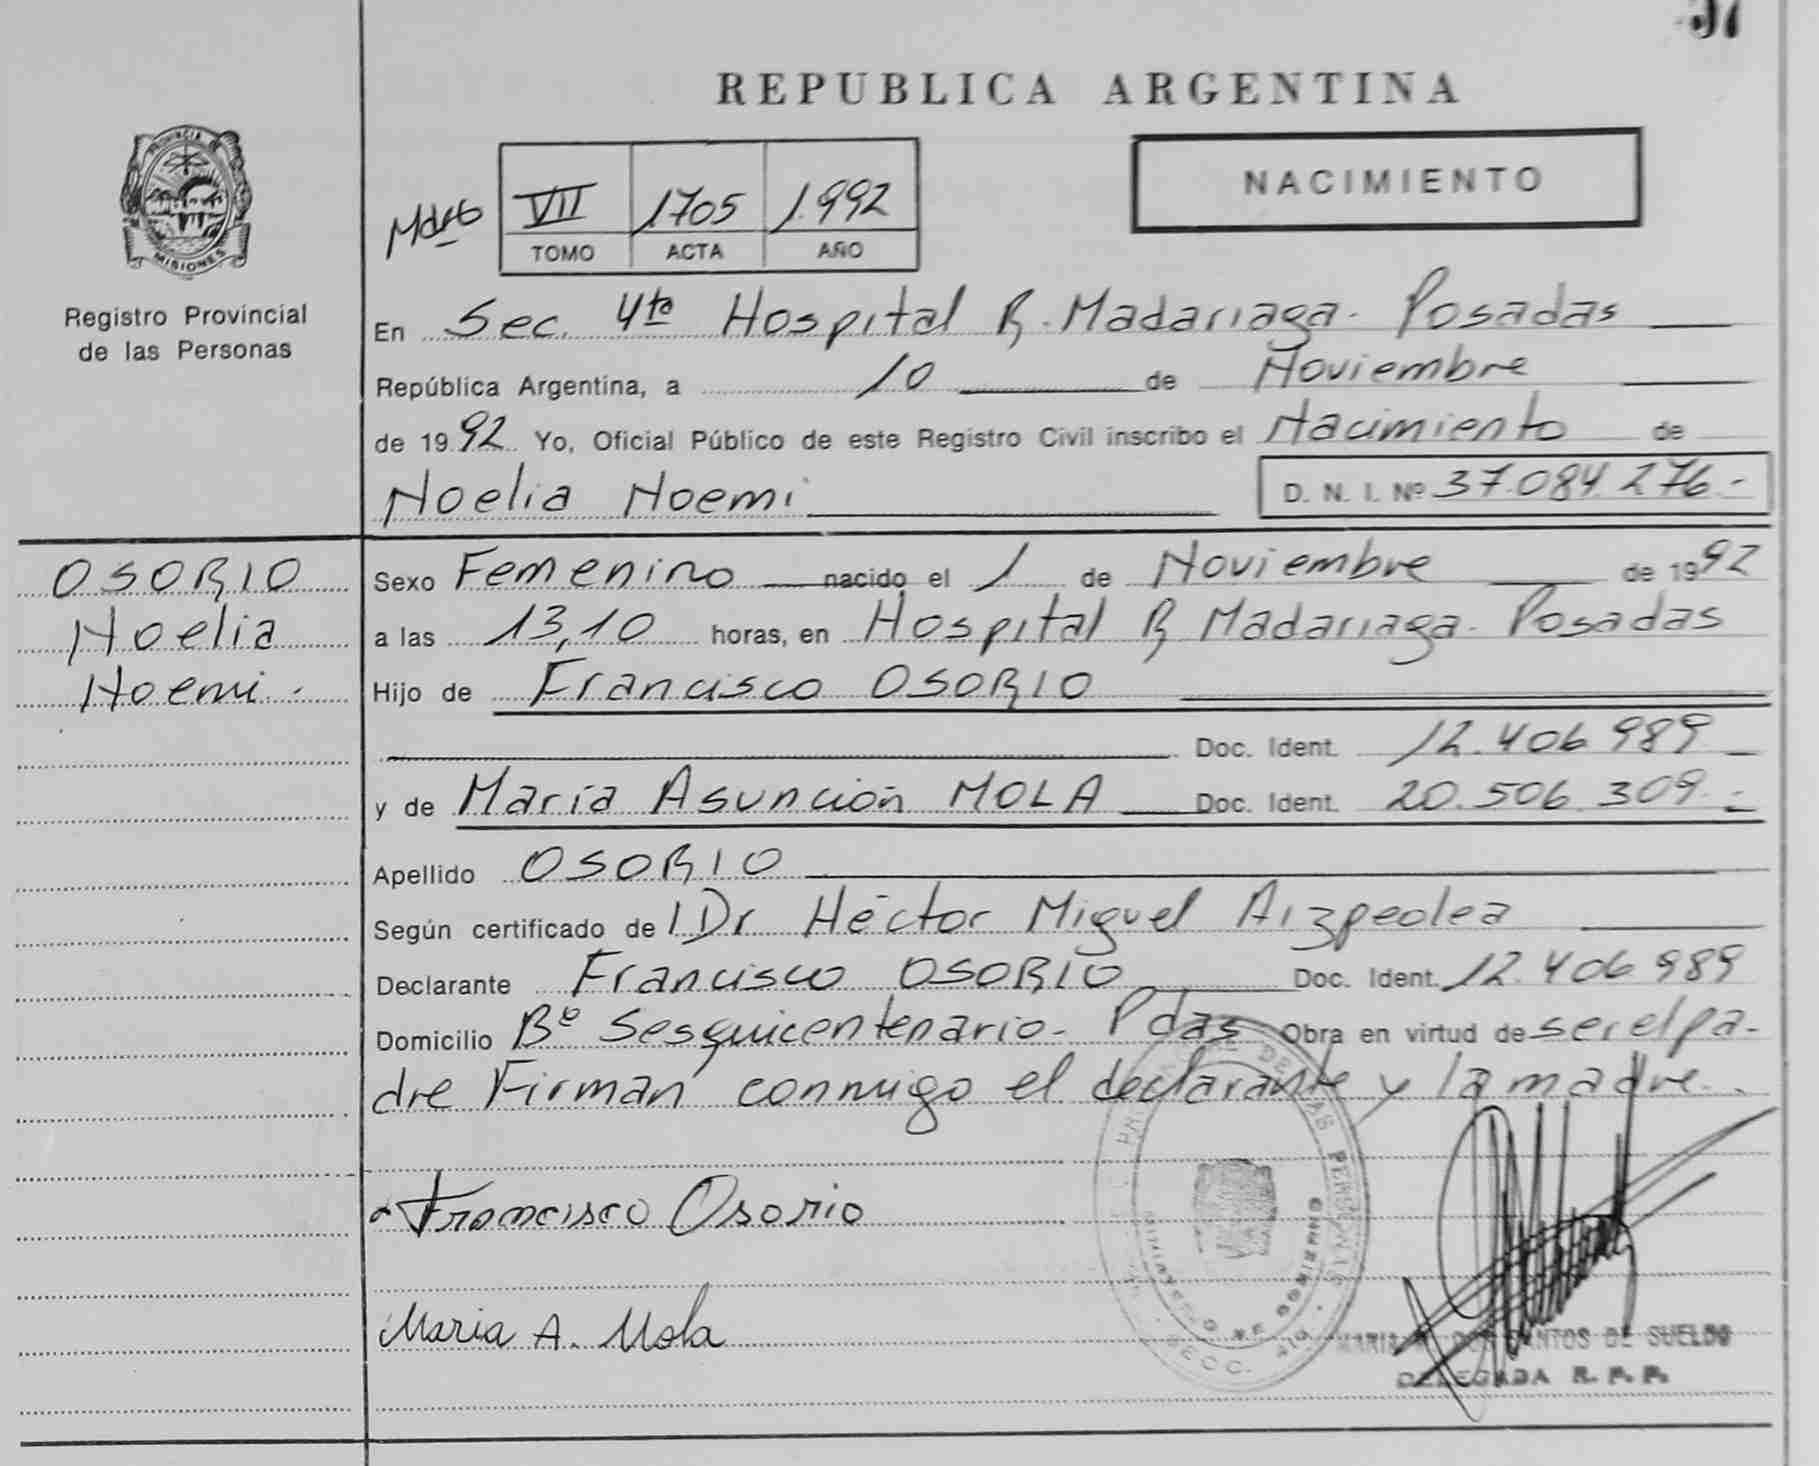 37
REPUBLICA ARGENTINA
PROVINCIA DE
MISIONES
Registro Provincial
de las Personas
NACIMIENTO
VII 1705 1.992
TOMO ACTA AÑO
En Sec. 4ta Hospital R. Madariaga. Posadas
República Argentina, a 10 de Noviembre
de 1992 Yo, Oficial Público de este Registro Civil inscribo el Nacimiento de
Noelia Noemi D. N. I. Nº 37.084.276.-
OSORIO
Noelia
Noemi.
Sexo Femenino nacido el 1 de Noviembre de 1992
a las 13,10 horas, en Hospital R Madariaga. Posadas
Hijo de Francisco OSORIO
Doc. Ident. 12.406.989
y de María Asunción MOLA Doc. Ident. 20.506.309.-
Apellido OSORIO
Según certificado de l Dr Héctor Miguel Aizpeolea
Declarante Francisco OSORIO Doc. Ident. 12.406.989
Domicilio Bº Sesquicentenario. Pdas Obra en virtud de ser el pa-
dre Firman conmigo el declarante y la madre.
Francisco Osorio
Maria A. Mola
DOS SANTOS DE SUELDO
DELEGADA R. P. P.